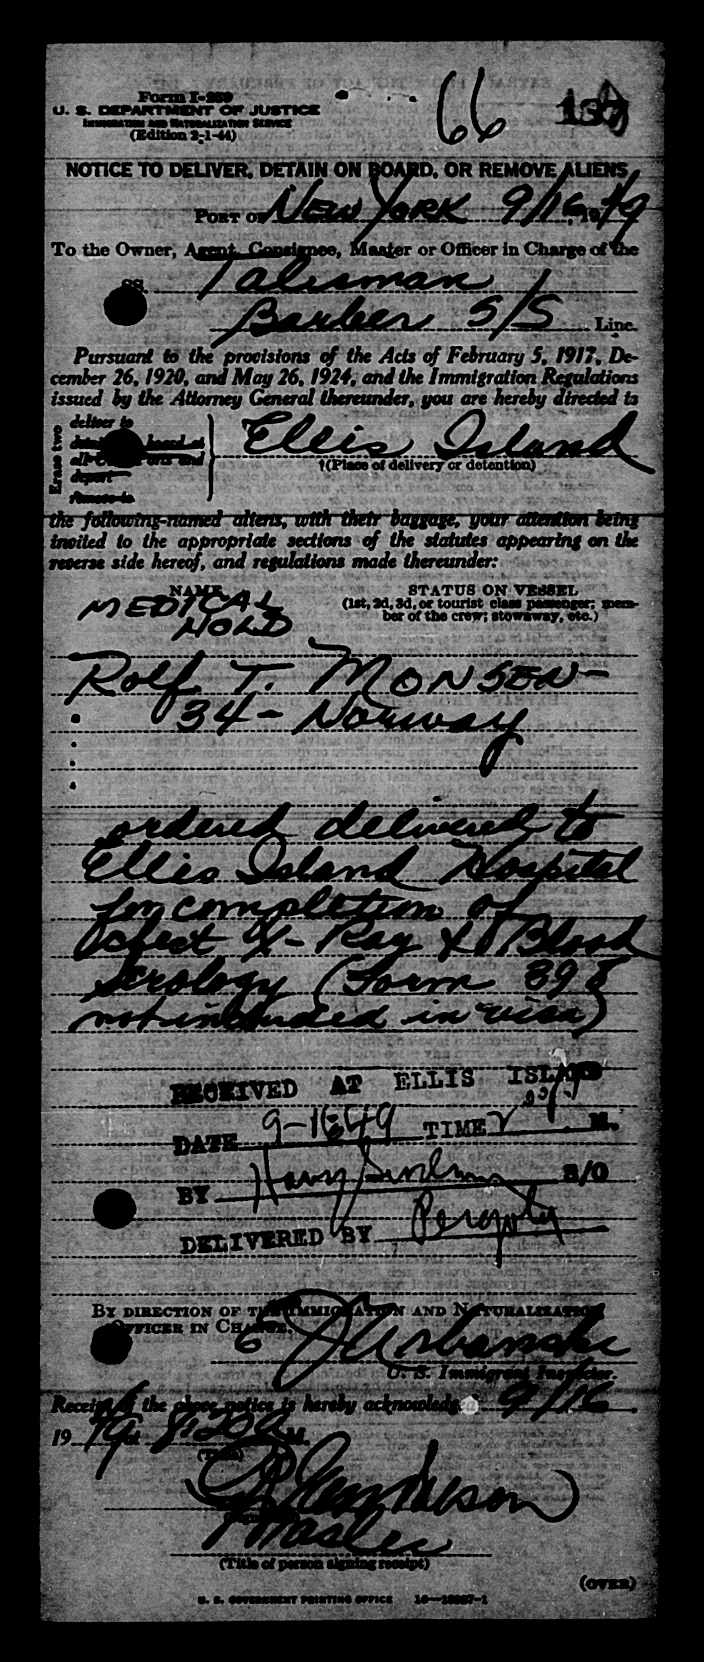 Form I-259
66
U. S. DEPARTMENT OF JUSTICE
IMMIGRATION AND NATURALIZATION SERVICE
(Edition 2-1-44)
NOTICE TO DELIVER, DETAIN ON BOARD, OR REMOVE ALIENS
PORT OF NEW YORK 9/16, 1949
To the Owner, Agent, Consignee, Master or Officer in Charge of the
SS. Talisman
Barber S/S Line.
Pursuant to the provisions of the Acts of February 5, 1917, De-
cember 26, 1920, and May 26, 1924, and the Immigration Regulations
issued by the Attorney General thereunder, you are hereby directed to
Erase two
deliver to
board at
all ports and
depart
remove to
Ellis Island
†(Place of delivery or detention)
the following-named aliens, with their baggage, your attention being
invited to the appropriate sections of the statutes appearing on the
reverse side hereof, and regulations made thereunder:
NAME STATUS ON VESSEL
(1st, 2d, 3d, or tourist class passenger; mem-
ber of the crew; stowaway, etc.)
MEDICAL
HOLD
Rolf T. MONSEN-
34- Norway
ordered delivered to
Ellis Island Hospital
for completion of
chest X-Ray & Blood
serology (Form 398
not included in visa)
RECEIVED AT ELLIS ISLAND
DATE 9-16-49 TIME M.
BY Harry S/O
DELIVERED BY
BY DIRECTION OF THE IMMIGRATION AND NATURALIZATION
OFFICER IN CHARGE.
J Urbanski
U. S. Immigrant Inspector.
Receipt of the above notice is hereby acknowledged 9/16
1949 at 8:20 A M.
(Time)
Master
(Title of person signing receipt)
(OVER)
U. S. GOVERNMENT PRINTING OFFICE